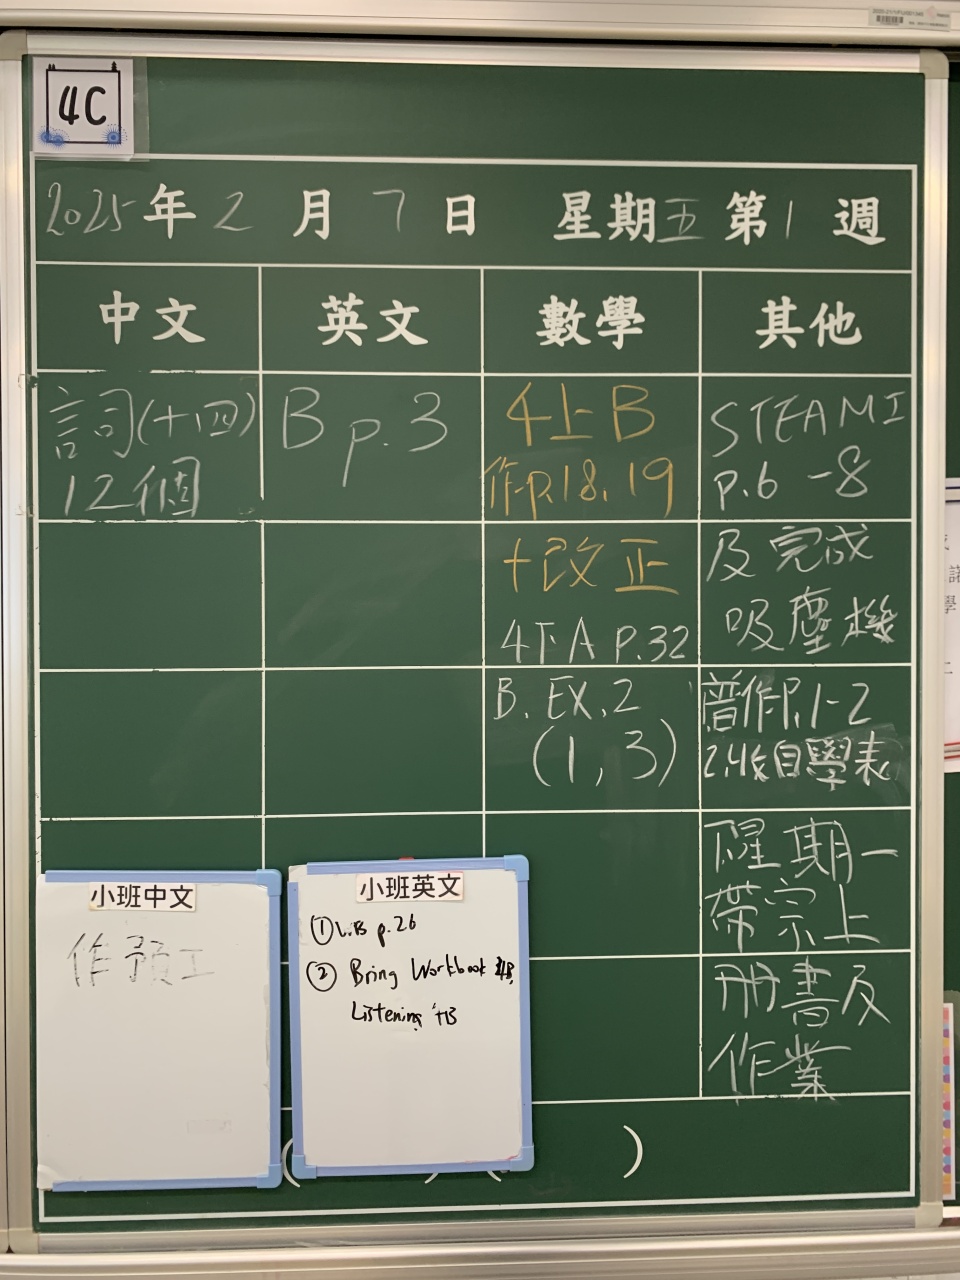 4C
2025年2月7日 星期五 第1週
中文 英文 數學 其他
詞(十四)
12個
B p.3
4上B
作p.18, 19
+改正
4下A P.32
B. EX.2
(1, 3)
STEAM I
p.6 -8
及完成
吸塵機
普作P.1-2
2.收自學表
星期一
帶宗上
冊書及
作業
小班中文
作預工
小班英文
① W.B p.26
② Bring Workbook 4B,
Listening 4B
( ) ( )